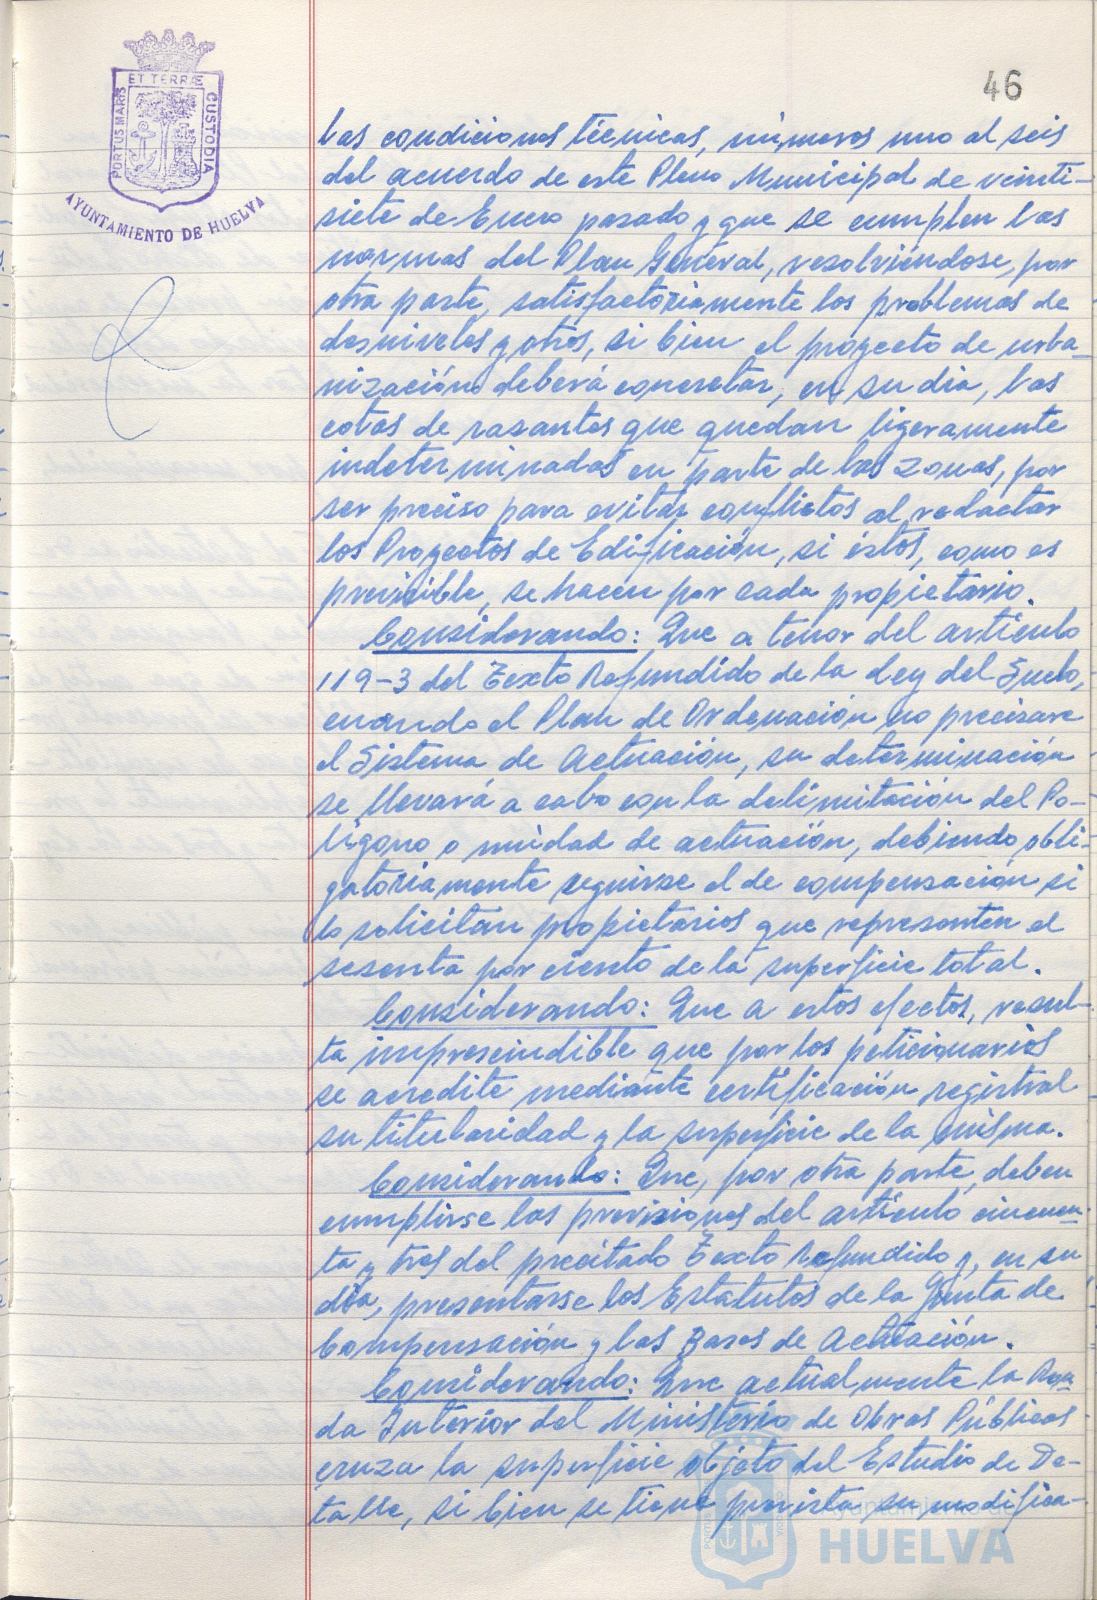 46
PORTUS MARIS ET TERRÆ CUSTODIA
AYUNTAMIENTO DE HUELVA
las condiciones técnicas, números uno al seis
del acuerdo de este Pleno Municipal de veinti-
siete de Enero pasado y que se cumplen las
normas del Plan General, resolviéndose, por
otra parte, satisfactoriamente los problemas de
desniveles y otros, si bien el proyecto de urba-
nización deberá concretar, en su día, las
cotas de rasantes que quedan ligeramente
indeterminadas en parte de las zonas, por
ser preciso para evitar conflictos al redactar
los Proyectos de Edificación, si éstos, como es
previsible, se hacen por cada propietario.
Considerando: Que a tenor del artículo
119-3 del Texto Refundido de la Ley del Suelo,
cuando el Plan de Ordenación no precisare
el Sistema de Actuación, su determinación
se llevará a cabo con la delimitación del Po-
lígono o unidad de actuación, debiendo obli-
gatoriamente seguirse el de compensación si
lo solicitan propietarios que representen el
sesenta por ciento de la superficie total.
Considerando: Que a estos efectos, resul-
ta imprescindible que por los peticionarios
se acredite mediante certificación registral
su titularidad y la superficie de la misma.
Considerando: Que, por otra parte, deben
cumplirse las previsiones del artículo cincuen-
ta y tres del precitado Texto Refundido y, en su
día, presentarse los Estatutos de la Junta de
Compensación y las Bases de Actuación.
Considerando: Que actualmente la Ron-
da Interior del Ministerio de Obras Públicas
cruza la superficie objeto del Estudio de De-
talle, si bien se tiene prevista su modifica-
Ayuntamiento de
HUELVA